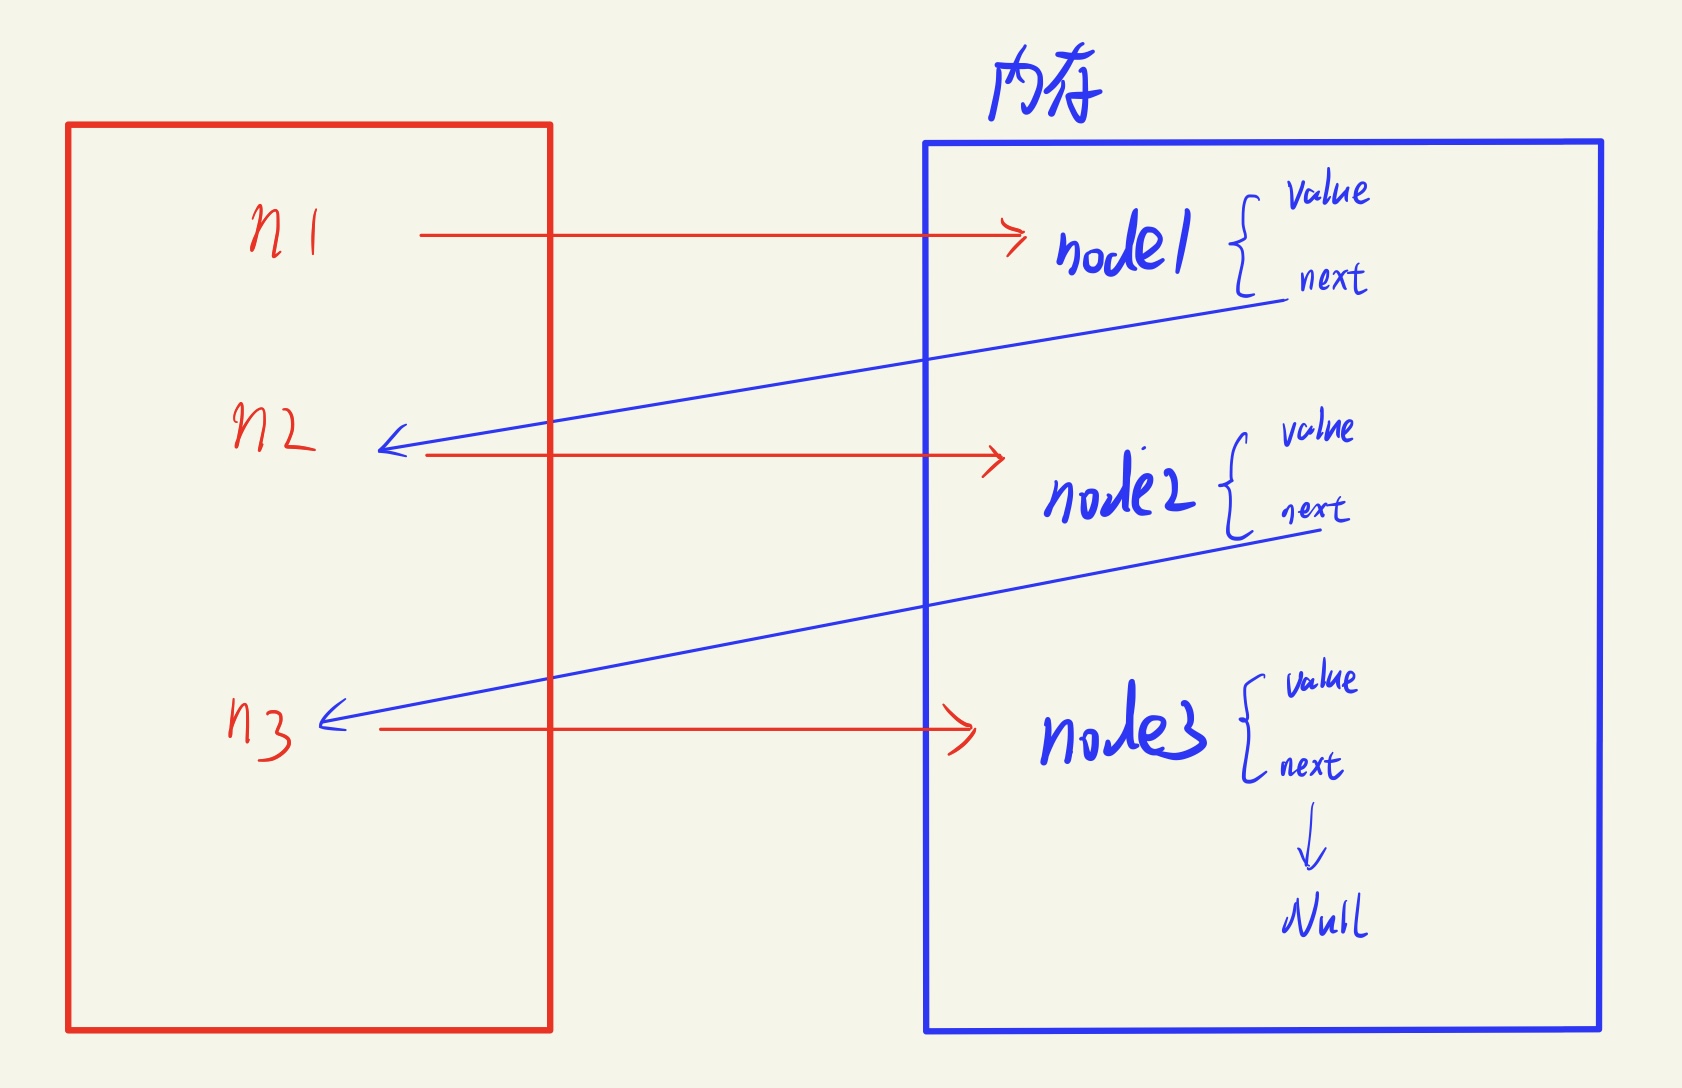 内存
n1
node1
value
next
n2
node2
value
next
n3
node3
value
next
Null